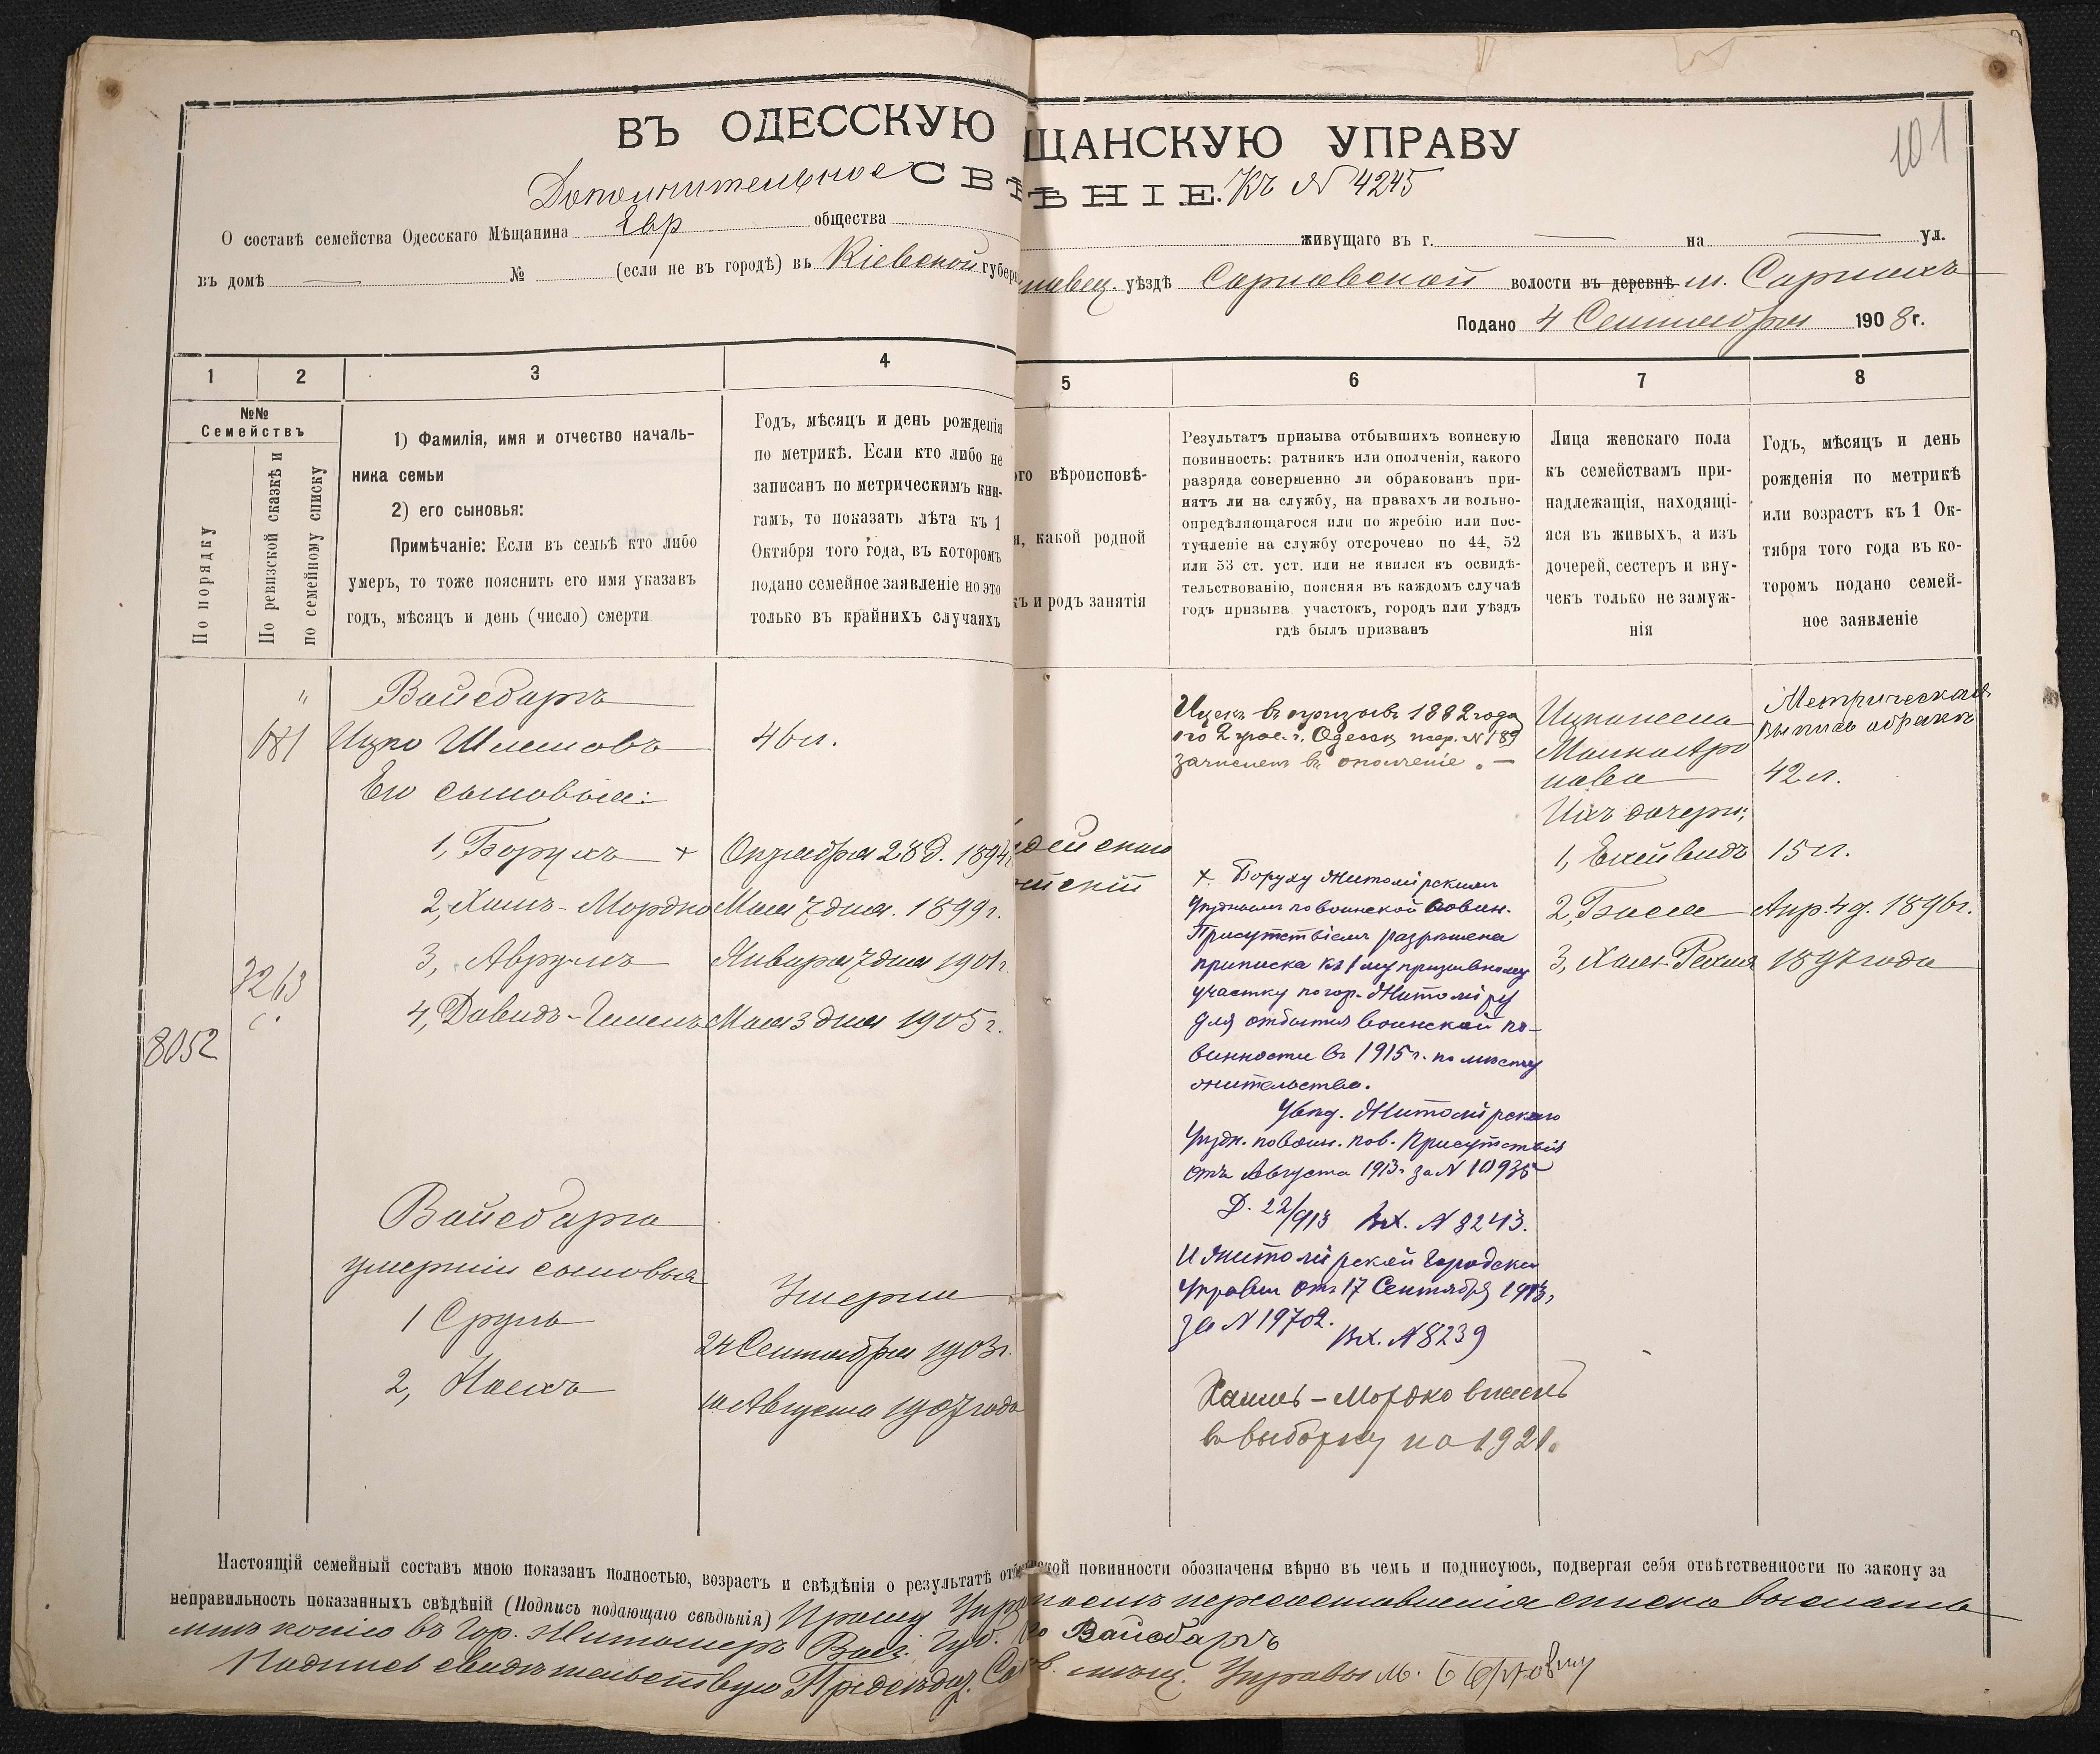 101
ВЪ ОДЕССКУЮ ЩАНСКУЮ УПРАВУ
Дополнительное СВѢНІЕ. Къ № 4245
О составѣ семейства Одесскаго Мѣщанина Евр общества живущаго въ г. — на — ул.
въ домѣ — № (если не въ городѣ) въ Кіевской губер уѣздѣ Сарновской волости въ деревнѣ м. Сарнахъ
Подано 4 Сентября 1908 г.
1 2 3 4 5 6 7 8
№№
Семействъ
По порядку
По ревизской сказкѣ и
по семейному списку
1) Фамилія, имя и отчество началь-
ника семьи
2) его сыновья:
Примѣчаніе: Если въ семьѣ кто либо
умеръ, то тоже пояснить его имя указавъ
годъ, мѣсяцъ и день (число) смерти
Годъ, мѣсяцъ и день рожденія
по метрикѣ. Если кто либо не
записанъ по метрическимъ кни-
гамъ, то показать лѣта къ 1
Октября того года, въ которомъ
подано семейное заявленіе но это
только въ крайнихъ случаяхъ
ого вѣроисповѣ-
я, какой родной
къ и родъ занятія
Результатъ призыва отбывшихъ воинскую
повинность: ратникъ или ополченія, какого
разряда совершенно ли обракованъ при-
нятъ ли на службу, на правахъ ли вольно-
опредѣляющагося или по жребію или пос-
тупленіе на службу отсрочено по 44, 52
или 53 ст. уст. или не явился къ освидѣ-
тельствованію, поясняя въ каждомъ случаѣ
годъ призыва участокъ, городъ или уѣздъ
гдѣ былъ призванъ
Лица женскаго пола
къ семействамъ при-
надлежащія, находящі-
яся въ живыхъ, а изъ
дочерей, сестеръ и вну-
чекъ только незамуж-
нія
Годъ, мѣсяцъ и день
рожденія по метрикѣ
или возрастъ къ 1 Ок-
тября того года въ ко-
торомъ подано семей-
ное заявленіе
"
681
3263
8052
Вайсбаргъ
Ицко Шлемовъ 46 л.
Его сыновья:
1, Борухъ + Октября 28 д. 1894 г.
2, Хаимъ-Мордко Мая 7 дня 1899 г.
3, Аврумъ Января 7 дня 1901 г.
4, Давидъ- Мая 3 дня 1905 г.
Вайсбарга
умершіе сыновья
Умерли
1 Сруль 24 Сентября 1903 г.
2, Насихъ 10 Августа 1907 года
дейская
йскій
Ицекъ въ призывъ 1882 года
по 2 уч. г. Одессы жер. № 189
зачисленъ въ ополченіе. —
+. Боруху Житомірскимъ
Уѣзднымъ по воинской повин.
Присутствіемъ разрѣшена
приписка къ 1му призывному
участку по гор. Житоміру
для отбытія воинской по-
винности въ 1915 г. по мѣсту
жительства.
Увѣд. Житомірскаго
Уѣздн. по воин. пов. Присутствія
отъ Августа 1913 г. за № 10935
Д. 22/913 Вх. № 8243.
И Житомірской Городской
Управы отъ 17 Сентября 1913,
за № 19702.
Вх. № 8239
Хаимъ-Мордко внесенъ
въ выборку на 1921.
Ицки жена
Малка Аро
нова
Ихъ дочери:
1, Ехейведъ 15 л.
2, Бася Апр. 4 д. 1896 г.
3, Хая-Рехля 1897 года
Метрическая
выпись о бракѣ
42 л.
Настоящій семейный составъ мною показанъ полностью, возрастъ и свѣдѣнія о результатѣ отб ской повинности обозначены вѣрно въ чемъ и подписуюсь, подвергая себя отвѣтственности по закону за
неправильность показанныхъ свѣдѣній (Подпись подающаго свѣдѣнія) Прошу Упр пересоставленія списка выслать
мнѣ копію въ Гор. Житомеръ Вол. Губ. Вайсбаргъ
Подпись свидѣтельствую Предсѣдат. мѣщ. Управы М.